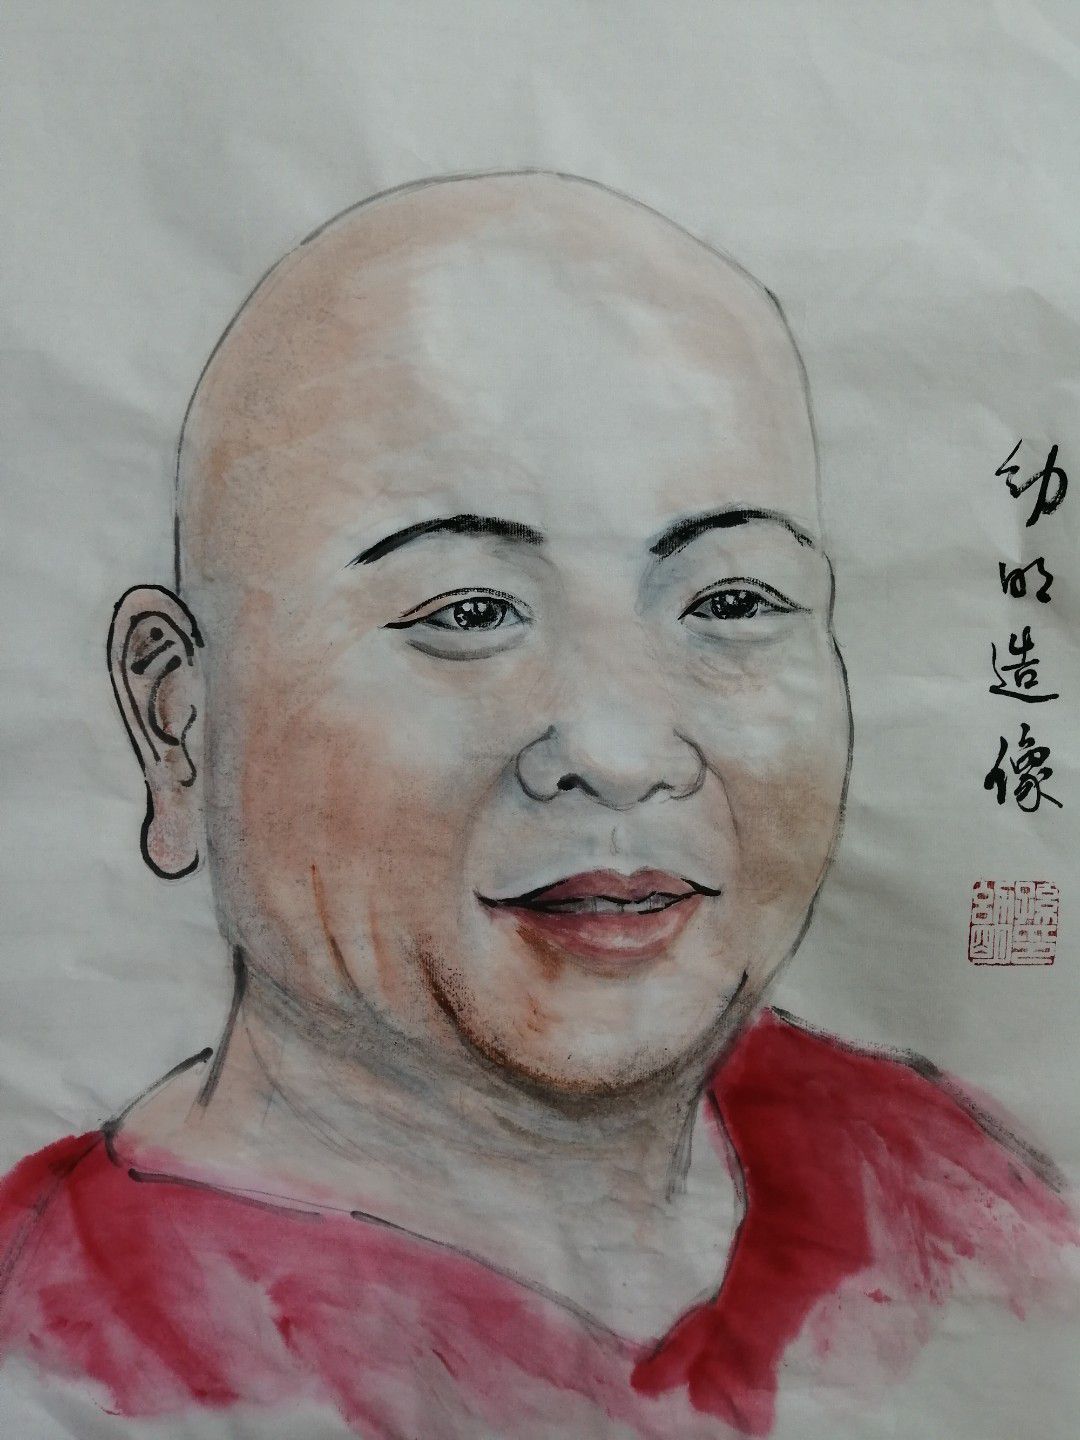 幼明造像